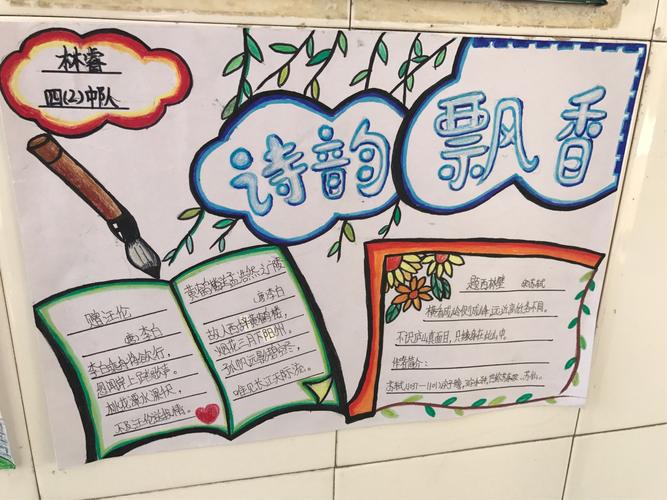 林睿
四(2)中队
诗韵
飘香
赠汪伦
唐李白
李白乘舟将欲行,
忽闻岸上踏歌声。
桃花潭水深千尺,
不及汪伦送我情。
黄鹤楼送孟浩然之广陵
唐李白
故人西辞黄鹤楼,
烟花三月下扬州。
孤帆远影碧空尽,
唯见长江天际流。
题西林壁
宋苏轼
横看成岭侧成峰,远近高低各不同。
不识庐山真面目,只缘身在此山中。
作者简介:
苏轼(1037—1101)